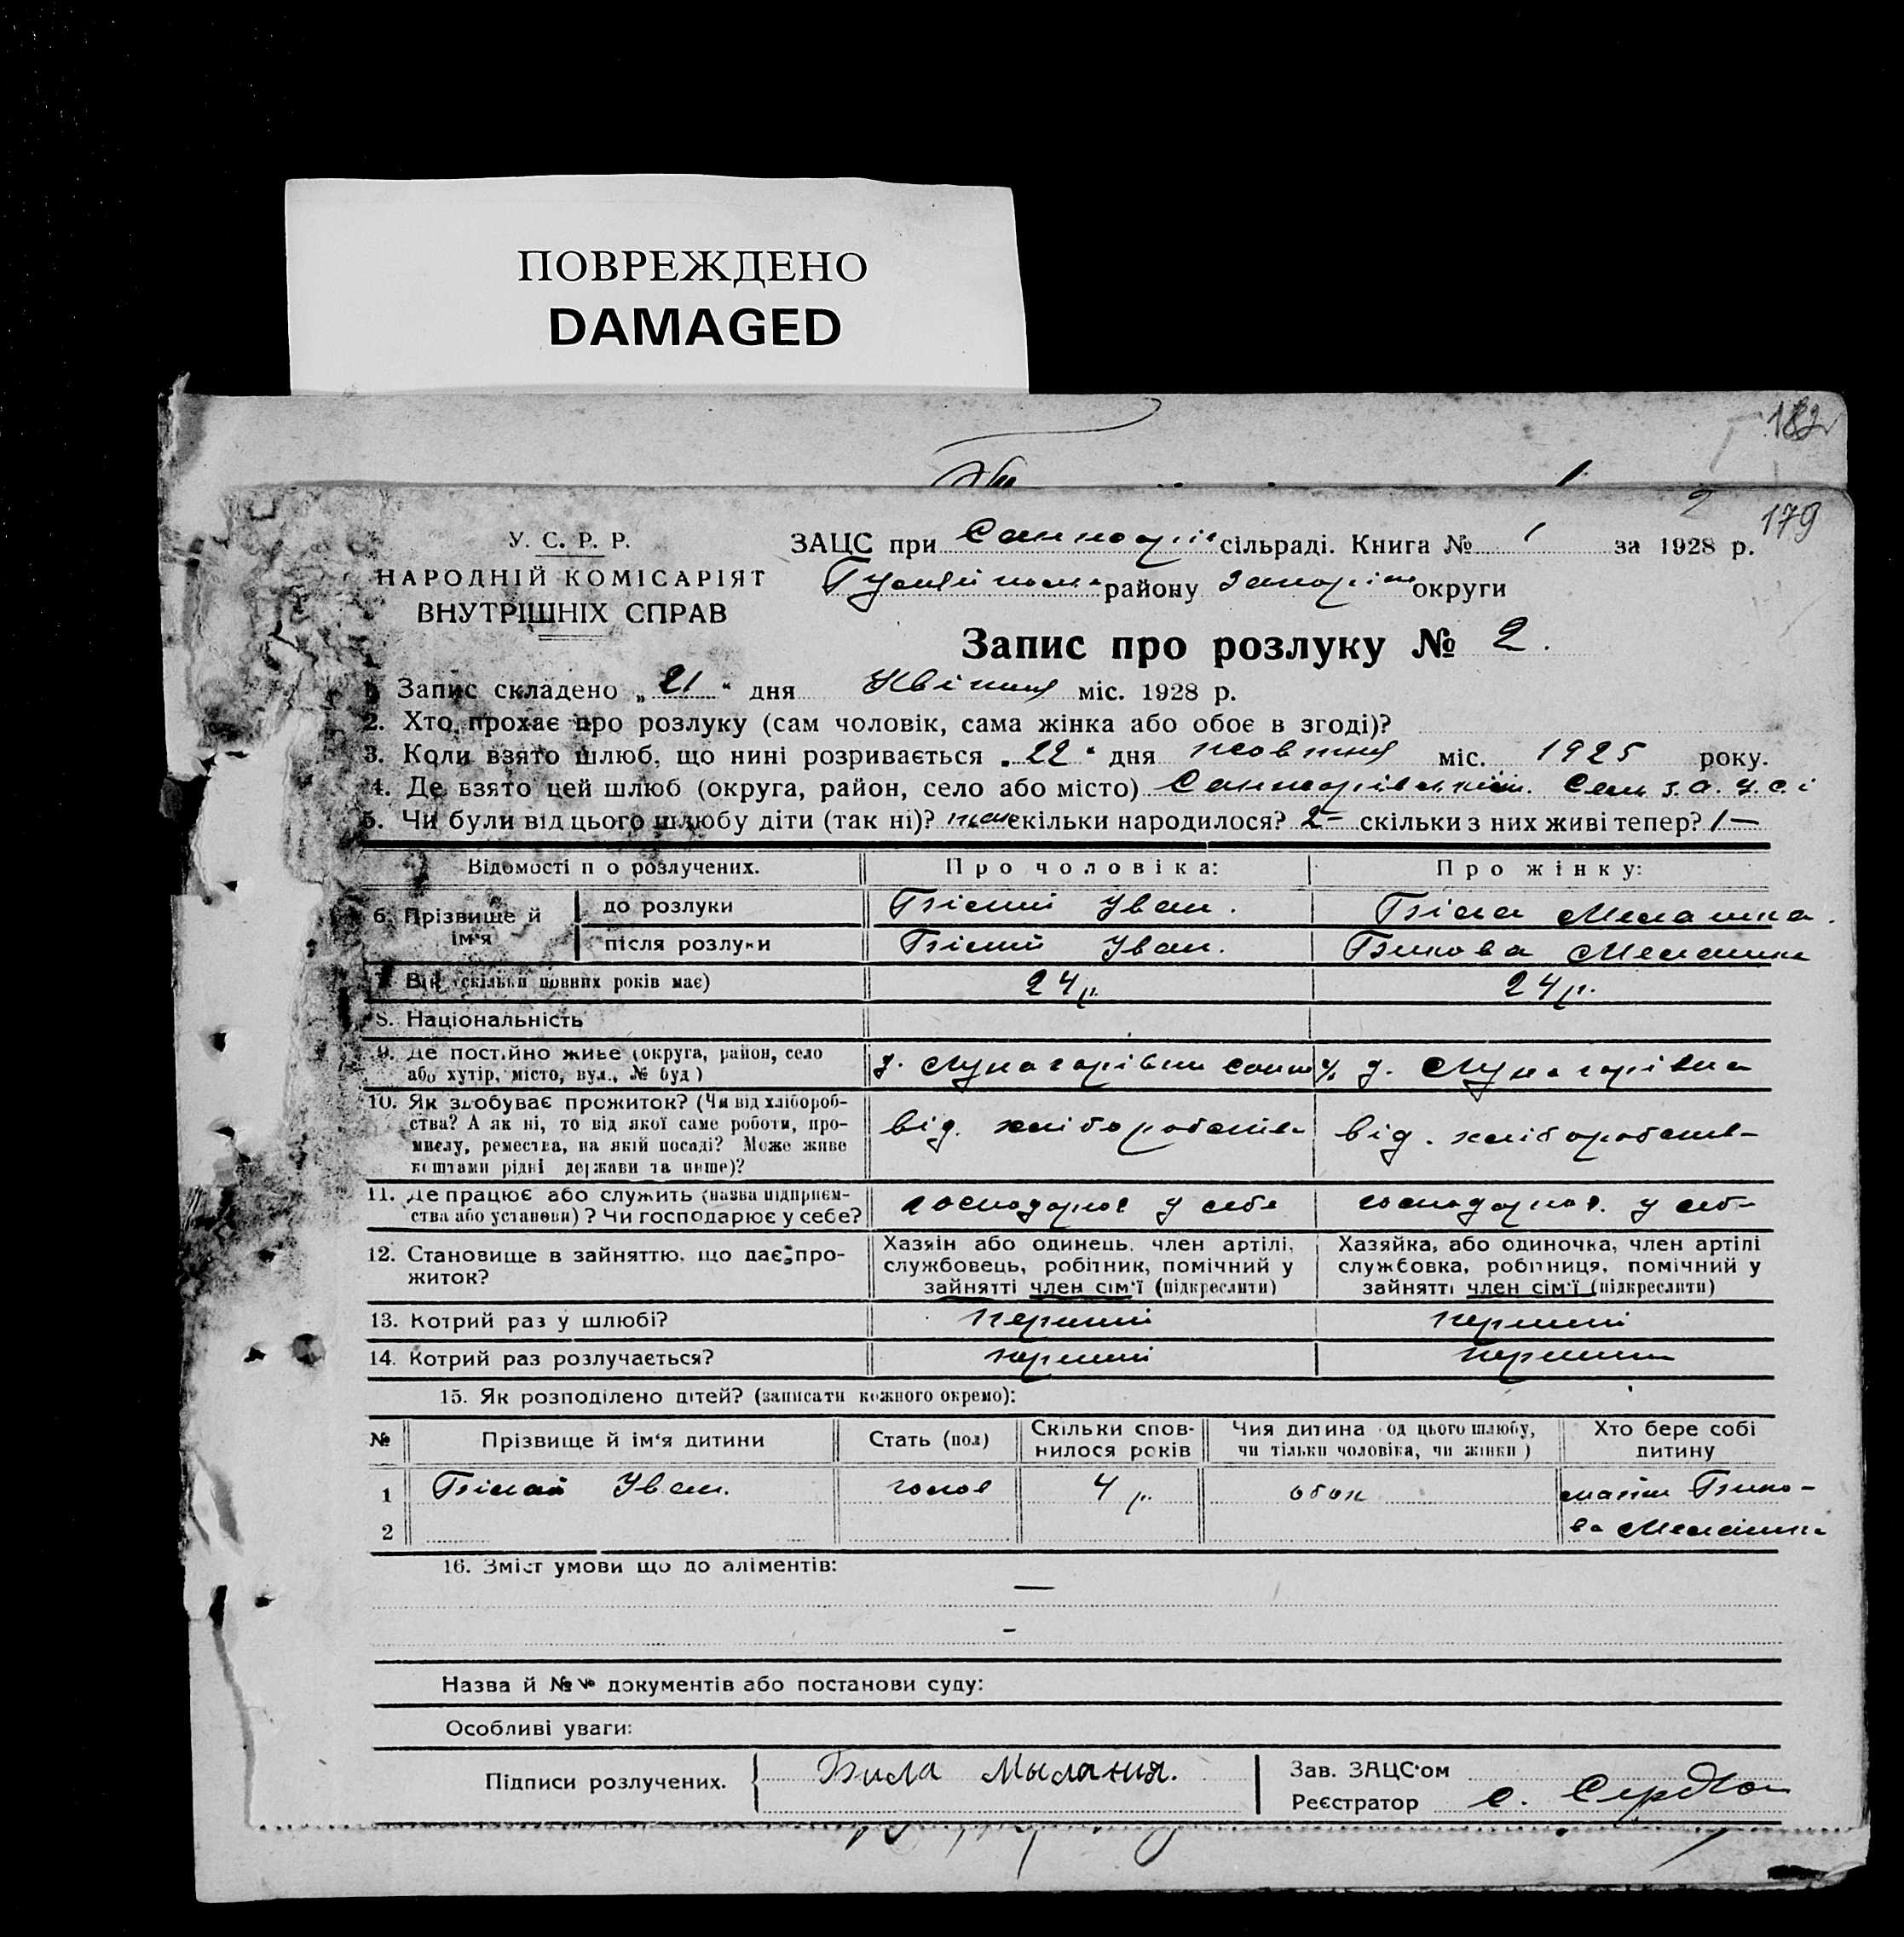 ПОВРЕЖДЕНО
DAMAGED
182
179
У. С. Р. Р.
НАРОДНІЙ КОМІСАРІЯТ
ВНУТРІШНІХ СПРАВ
ЗАЦС при сільраді. Книга № 1 за 1928 р.
району Запоріж округи
Запис про розлуку № 2.
1. Запис складено „21“ дня Квітня міс. 1928 р.
2. Хто прохає про розлуку (сам чоловік, сама жінка або обоє в згоді)?
3. Коли взято шлюб, що нині розривається „22“ дня жовтня міс. 1925 року.
4. Де взято цей шлюб (округа, район, село або місто) з.а.ц.с.і
5. Чи були від цього шлюбу діти (так ні)? так скільки народилося? 2- скільки з них живі тепер? 1-
Відомості по розлучених.
Про чоловіка:
Про жінку:
6. Прізвище й ім'я
до розлуки Білий Іван. Біла Меланка.
після розлуки Білий Іван. Бикова Меланка
7. Вік (скільки повних років має) 24 р. 24 р.
8. Національність
9. Де постійно живе (округа, район, село
або хутір, місто, вул., № буд)
10. Як здобуває прожиток? (Чи від хлібороб-
ства? А як ні, то від якої саме роботи, про-
мислу, ремества, на якій посаді? Може живе
коштами рідні держави та инше)?
від. хліборобства від. хліборобств
11. Де працює або служить (назва підприєм-
ства або установи)? Чи господарює у себе?
господарює у себе господарює. у себе
12. Становище в зайняттю, що дає про-
житок?
Хазяїн або одинець, член артілі,
службовець, робітник, помічний у
зайнятті член сім'ї (підкреслити)
Хазяйка, або одиночка, член артілі
службовка, робітниця, помічний у
зайнятті член сім'ї (підкреслити)
13. Котрий раз у шлюбі? перший перший
14. Котрий раз розлучається? перший перший
15. Як розподілено дітей? (записати кожного окремо):
№ Прізвище й ім'я дитини Стать (пол) Скільки спов-
нилося років Чия дитина од цього шлюбу,
чи тільки чоловіка, чи жінки) Хто бере собі
дитину
1 Білий Іван. чолов 4 р. обох матім Бико-
2 ва Меланка
16. Зміст умови що до аліментів:
—
-
Назва й №№ документів або постанови суду:
Особливі уваги:
Підписи розлучених. Била Мылания.
Зав. ЗАЦС'ом
Реєстратор